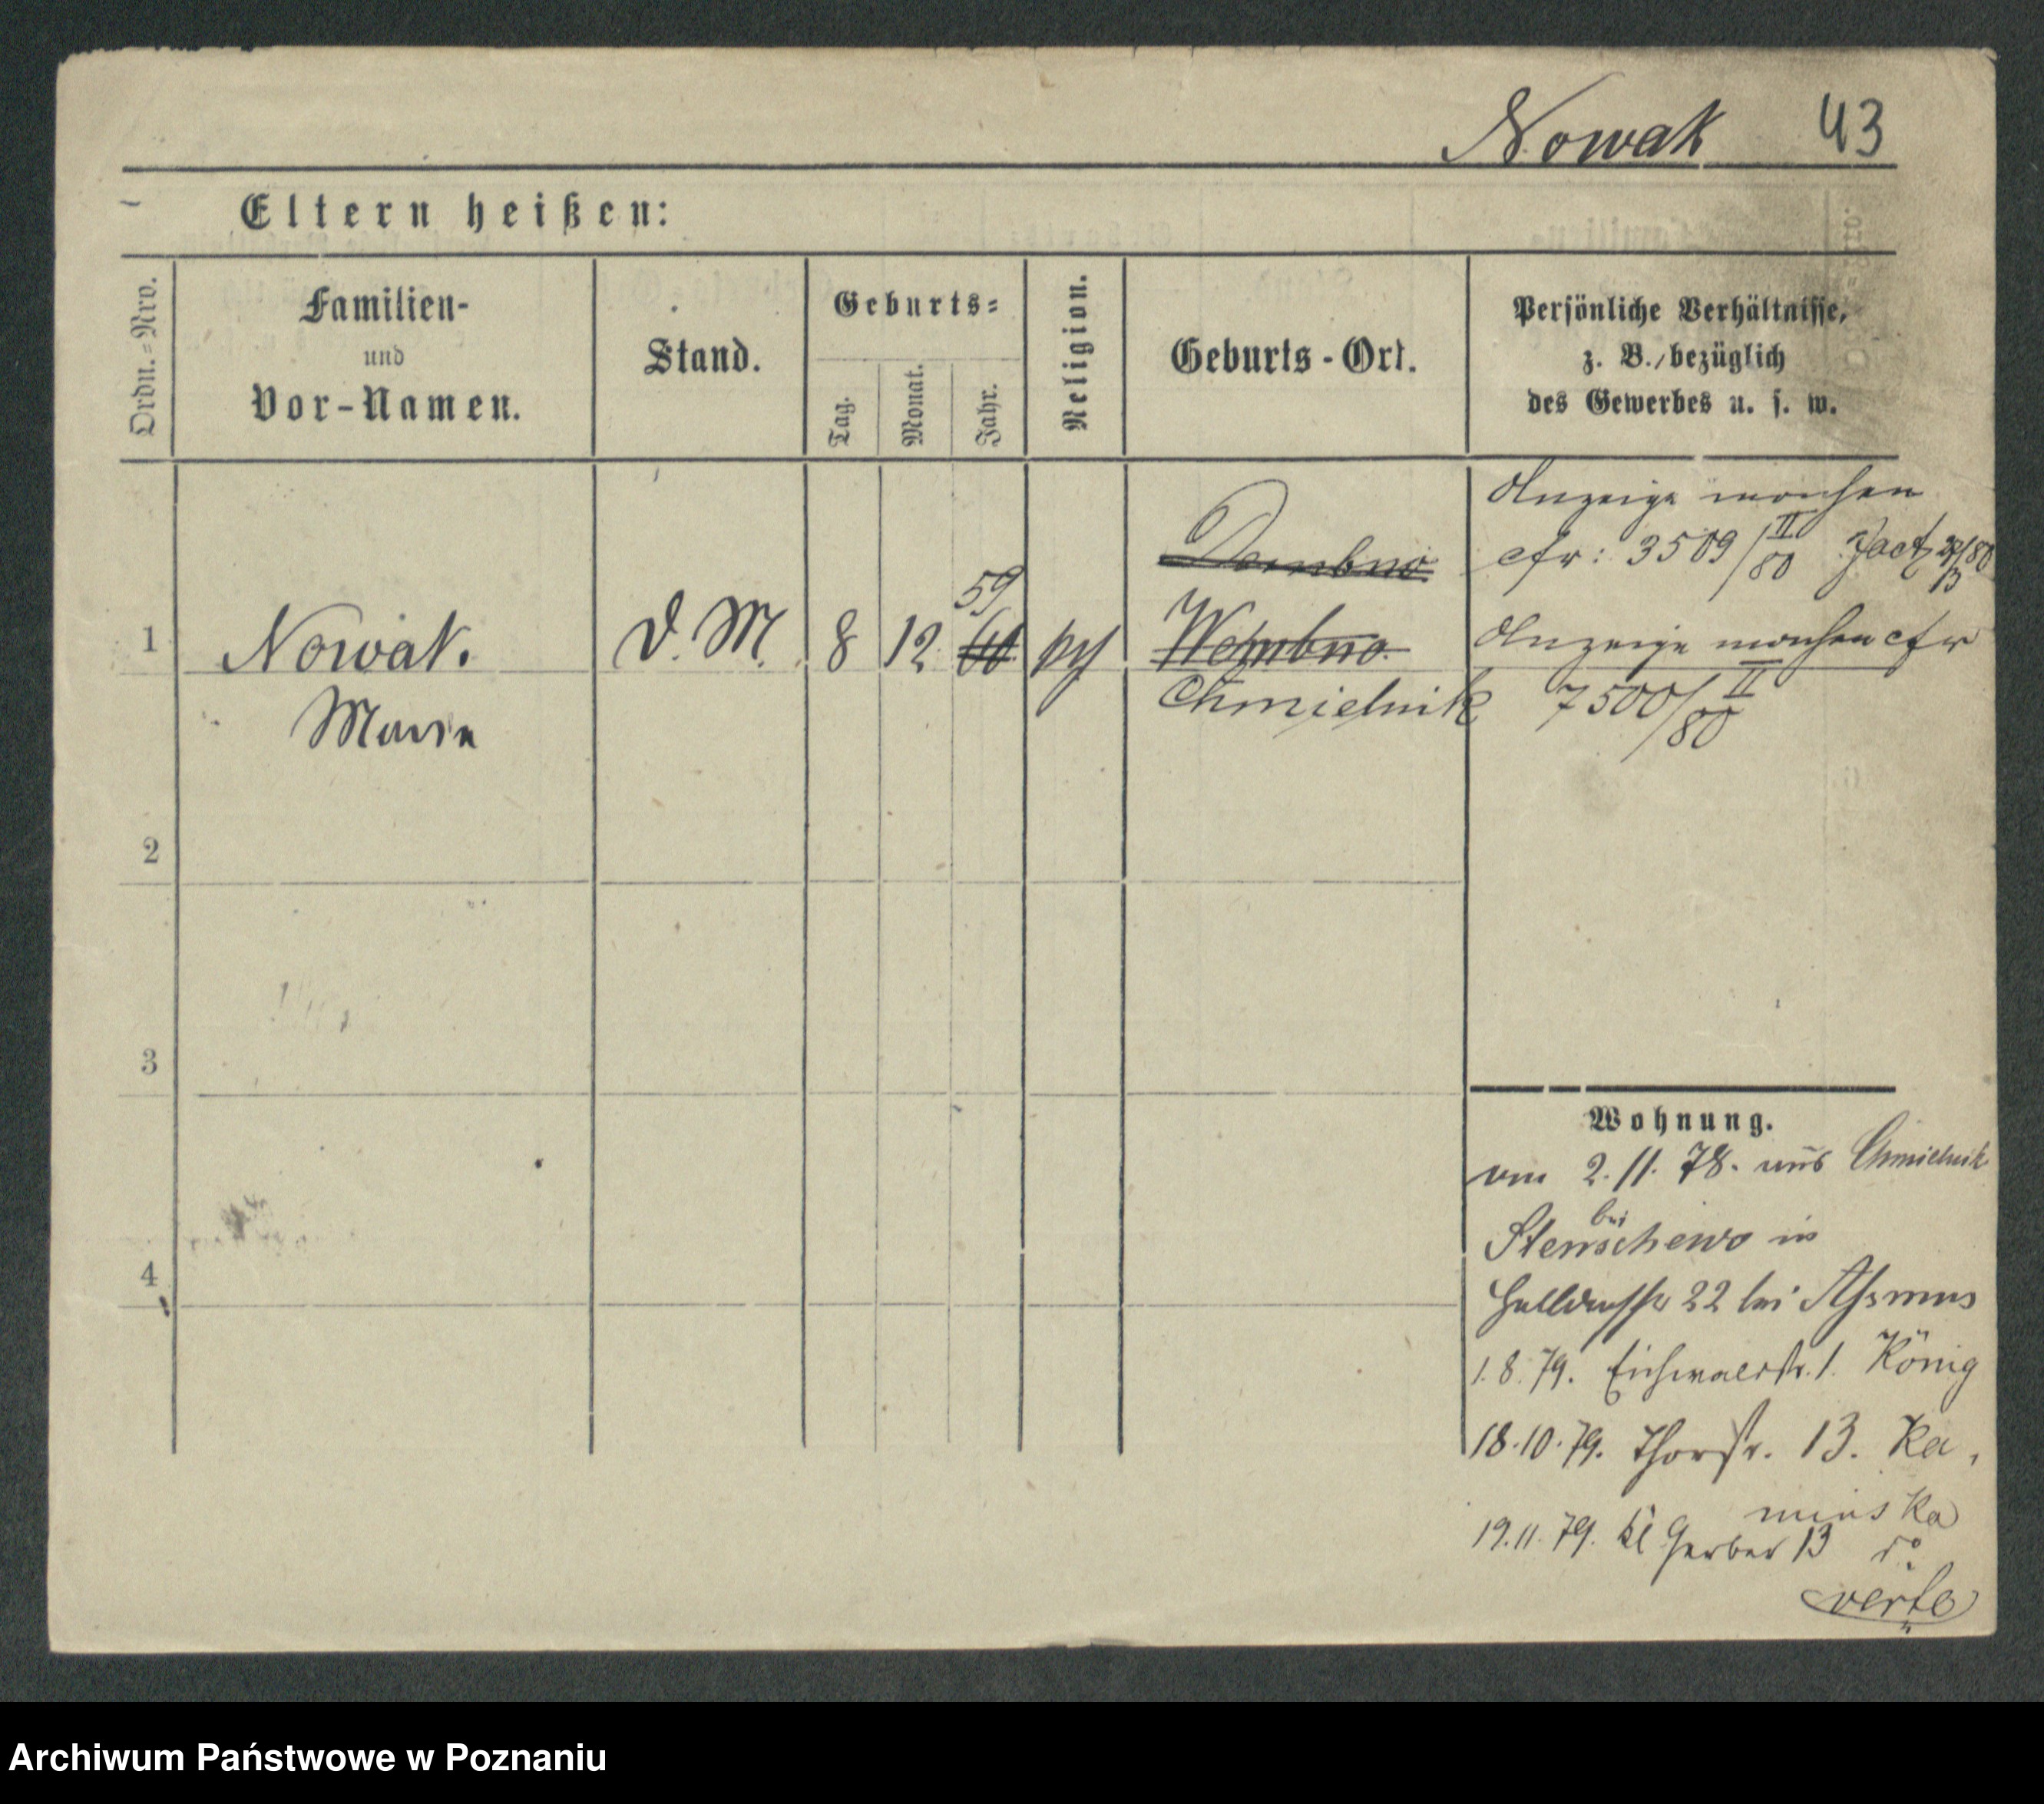 Nowak 43
Eltern heißen:
Ordn.=Nro.
Familien-
und
Vor-Namen.
Stand.
Geburts=
Tag.
Monat.
Jahr.
Religion.
Geburts-Ort.
Persönliche Verhältnisse,
z. B. bezüglich
des Gewerbes u. s. w.
1
Nowak.
Marie
D. M.
8
12
59
60
Dembno
Wembno
Chmielnik
Anzeige
cfr: 3509/II 80
Anzeige cfr
7500/II 80
2
3
4
Wohnung.
2.11.78. aus Chmielnik
bei
Stenschewo in
Halldorfstr 22 bei Assmus
1.8.79. Eichwaldstr. 1. König
18.10.79. Thorstr. 13. Ka
minska
19.11.79. Kl Gerber 13 do
verte
Archiwum Państwowe w Poznaniu